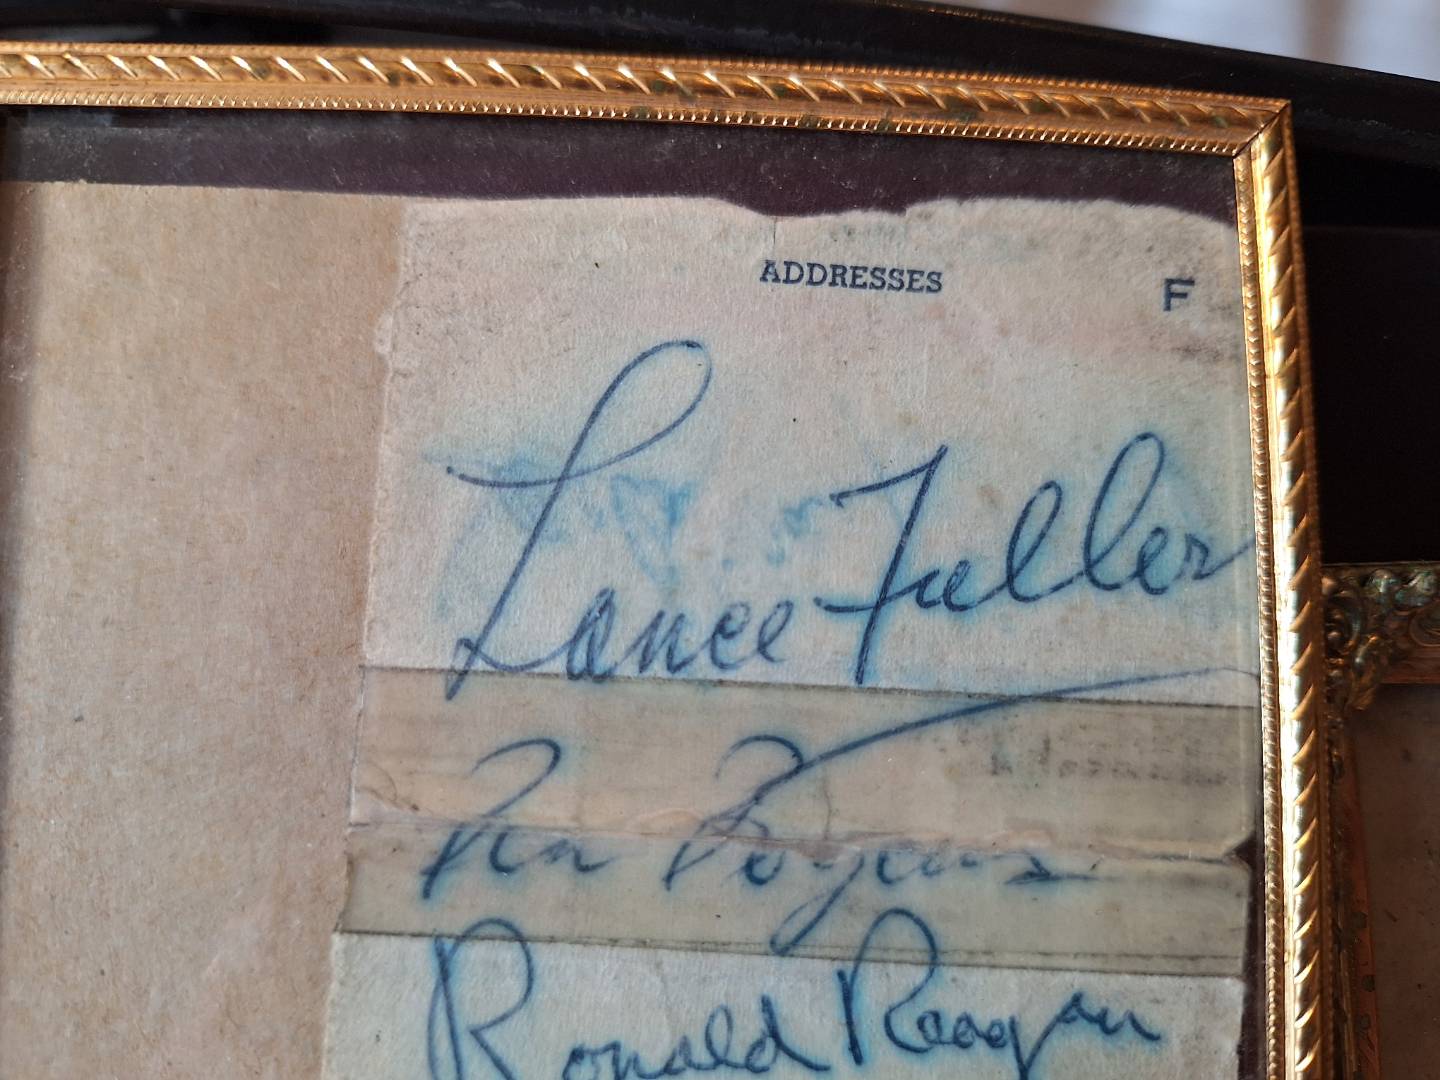 ADDRESSES F
Lance Fuller
Ronald Reagan